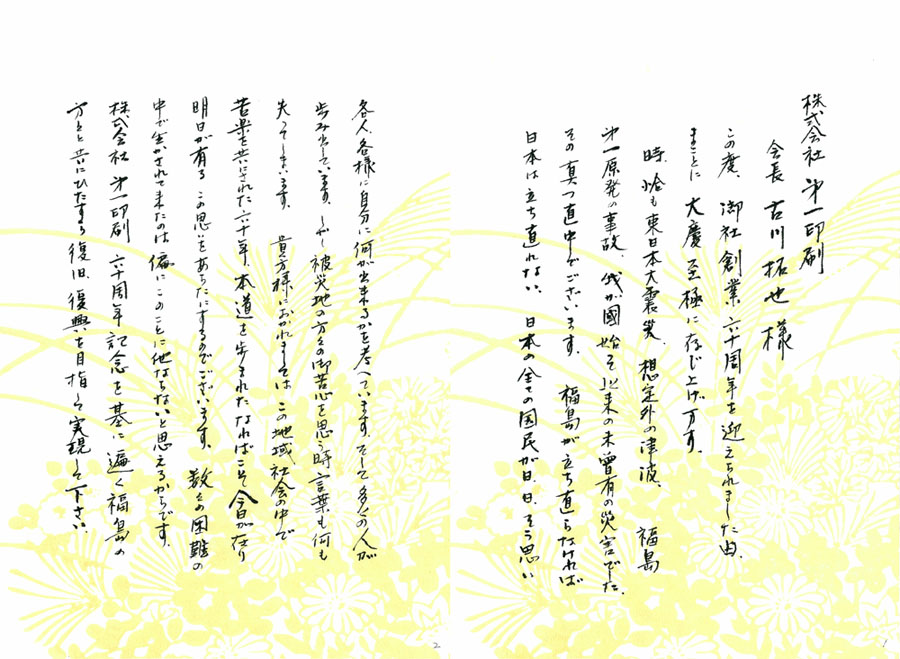 株式会社 第一印刷
会長 古川拓也様
この度、御社創業六十周年を迎えられました由、
まことに大慶至極に存じ上げ万す。
時、恰も東日本大震災、想定外の津波、福島
第一原発の事故、我が國始って以来の未曽有の災害でした。
その真っ直中でございます。福島が立ち直らなければ
日本は立ち直れない、日本の全ての国民が日、日、そう思い
1
各人各様に自分に何が出来るかを考へています。そして多くの人が
歩み出しています。しかし被災地の方々の御苦心を思う時言葉も何も
失ってしまいます。貴方様におかれましてはこの地域社会の中で
苦楽を共にされた六十年、本道を歩まれたなればこそ今日が在り
明日が有る この思いをあらたにするのでございます。数々の困難の
中で生かされて来たのは偏にこのことに他ならないと思えるからです。
株式会社 第一印刷 六十周年記念を基に遍く福島の
方々と共にひたすら復旧、復興を目指して実現して下さい。
2